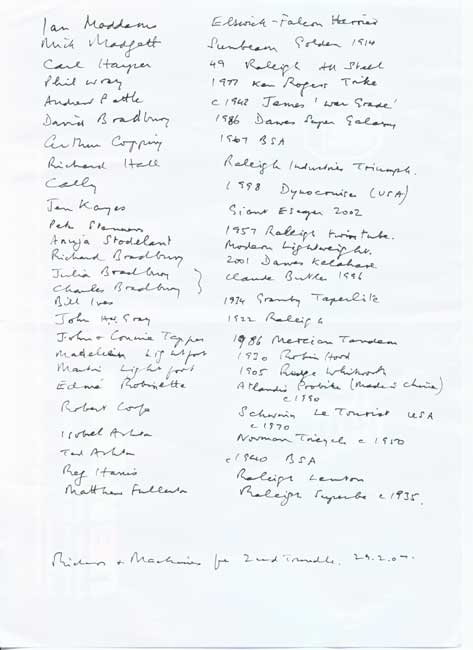 Ian Maddams Elswick-Falcon Harrier
Mick Madgett Sunbeam Golden 1914
Carl Harper 49 Raleigh All Steel
Phil Wray 1977 Ken Rogers Trike
Andrew Pattle c1942 James 'War Grade'
David Bradbury 1986 Dawes Super Galaxy
Arthur Copping 1967 BSA
Richard Hall Raleigh Industries Triumph.
Cally 1998 Dynocruise (USA)
Jen Kayes Giant Escaper 2002
Pete 1957 Raleigh twin tube.
Anyja Stodelant Modern Lightweight.
Richard Bradbury 2001 Dawes Kalahari
Julia Bradbury } Claude Butler 1996
Charles Bradbury
Bill Ives 1934 Granby Taperlite
John H.W. Gray 1922 Raleigh
John + Connie Tapper 1986 Mercian Tandem
Madeleine Lightfoot 1930 Robin Hood
Martin Lightfoot 1905 Rudge Whitworth
Edmé Robinette Atlantis Probike (Made in China)
c1990
Robert Corfe Schwinn Le Tourist USA
c1970
Isobel Ashton Norman Tricycle c1950
Ted Ashton c1940 BSA
Reg Harris Raleigh Lenton
Matthew Fullerton Raleigh Superbe c1935.
Riders + Machines for 2nd Trundle. 29.2.0